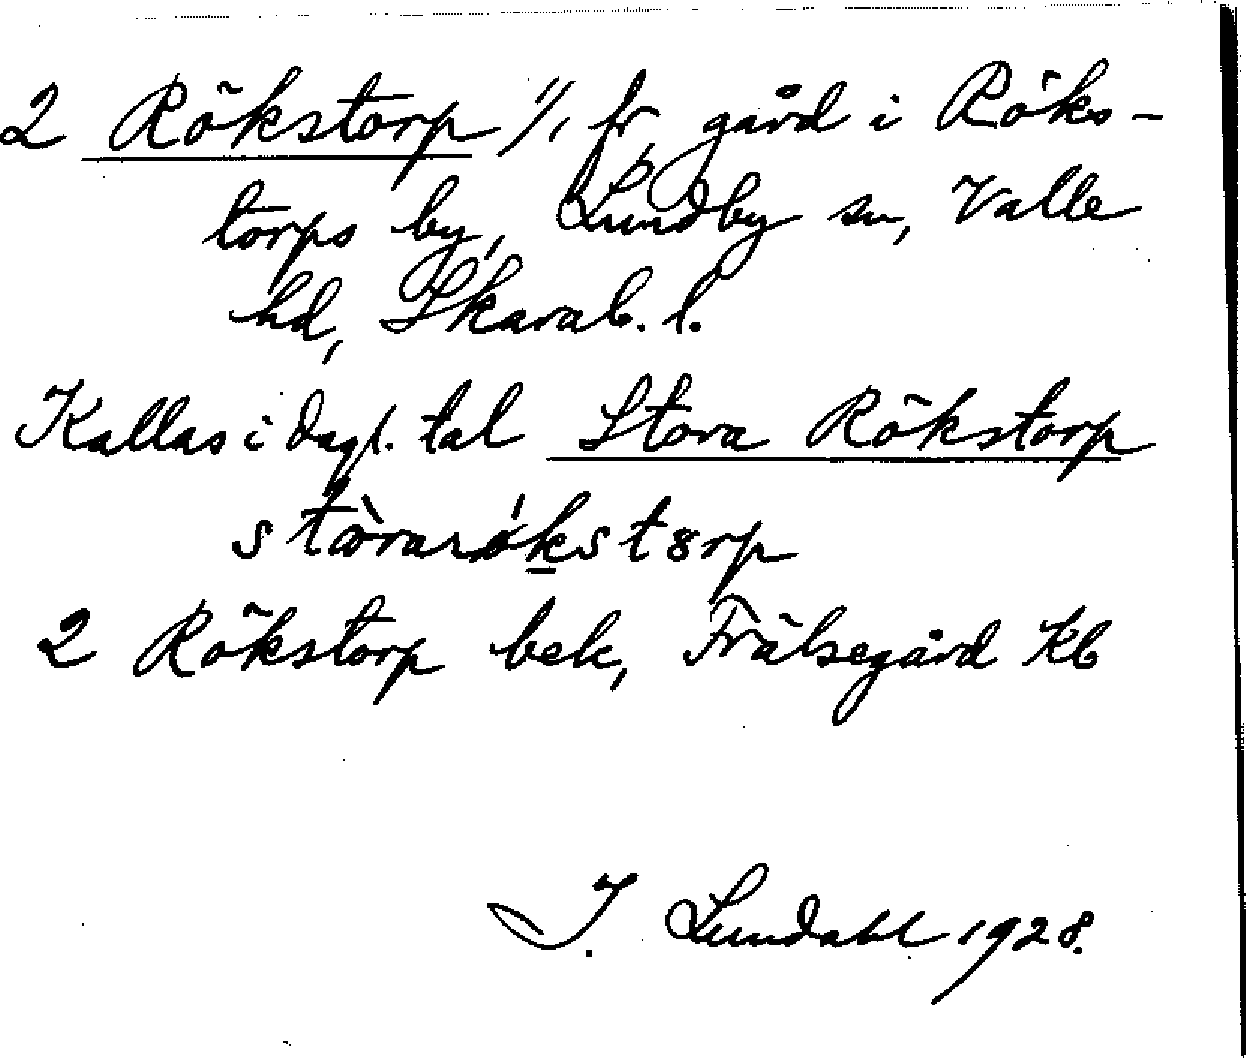 2 Rökstorp 1/1 fr, gård i Röks-
torps by, Lundby sn, Valle
hd, Skarab. l.
Kallas i dagl. tal Stora Rökstorp
2 Rökstorp bek, Frälsegård Kb
I. Lundahl 1928.